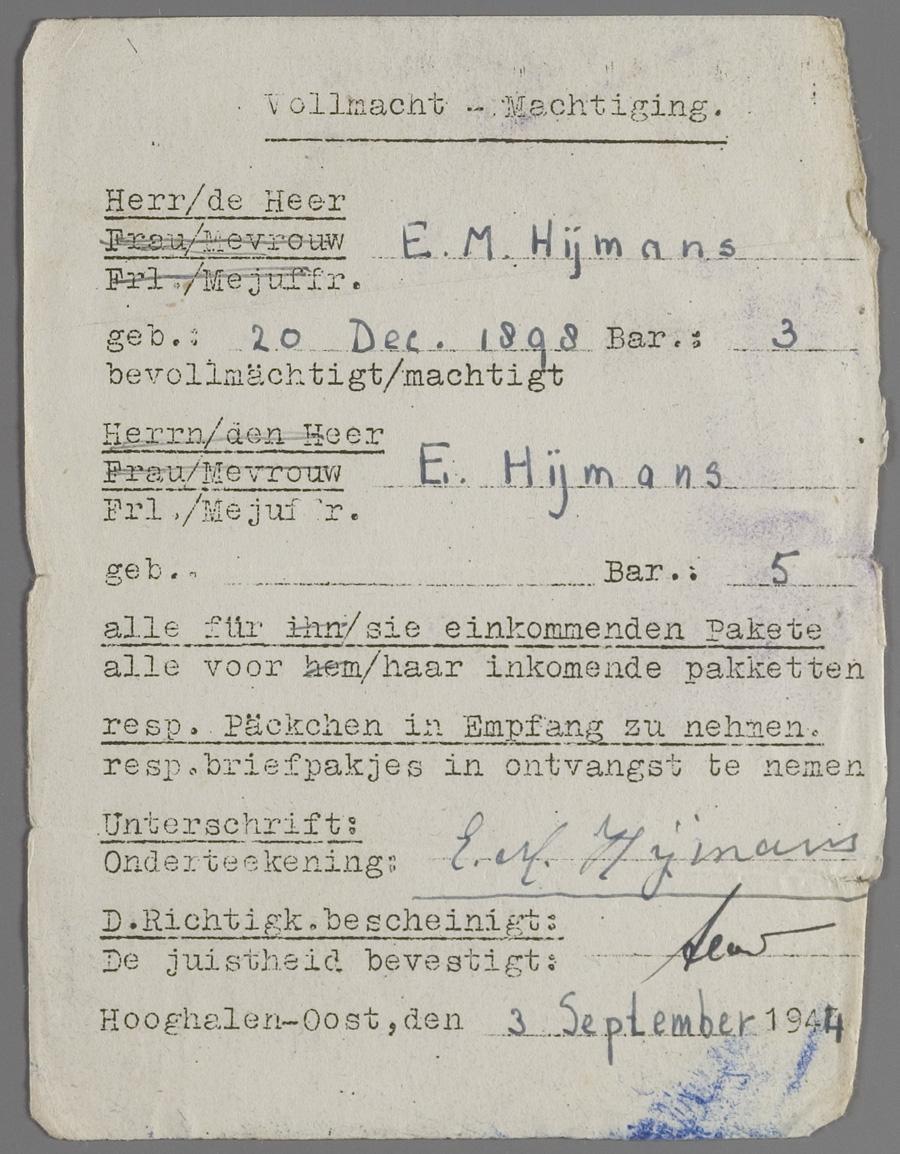 Vollmacht - Machtiging.
Herr/de Heer
Frau/Mevrouw E.M. Hijmans
Frl./Mejuffr.
geb.: 20 Dec. 1898 Bar.: 3
bevollmächtigt/machtigt
Herrn/den Heer
Frau/Mevrouw E. Hijmans
Frl./Mejuffr.
geb.: Bar.: 5
alle für ihn/sie einkommenden Pakete
alle voor hem/haar inkomende pakketten
resp. Päckchen in Empfang zu nehmen.
resp.briefpakjes in ontvangst te nemen
Unterschrift:
Onderteekening: E. M. Hijmans
D.Richtigk.bescheinigt:
De juistheid bevestigt:
Hooghalen-Oost,den 3 September 1944